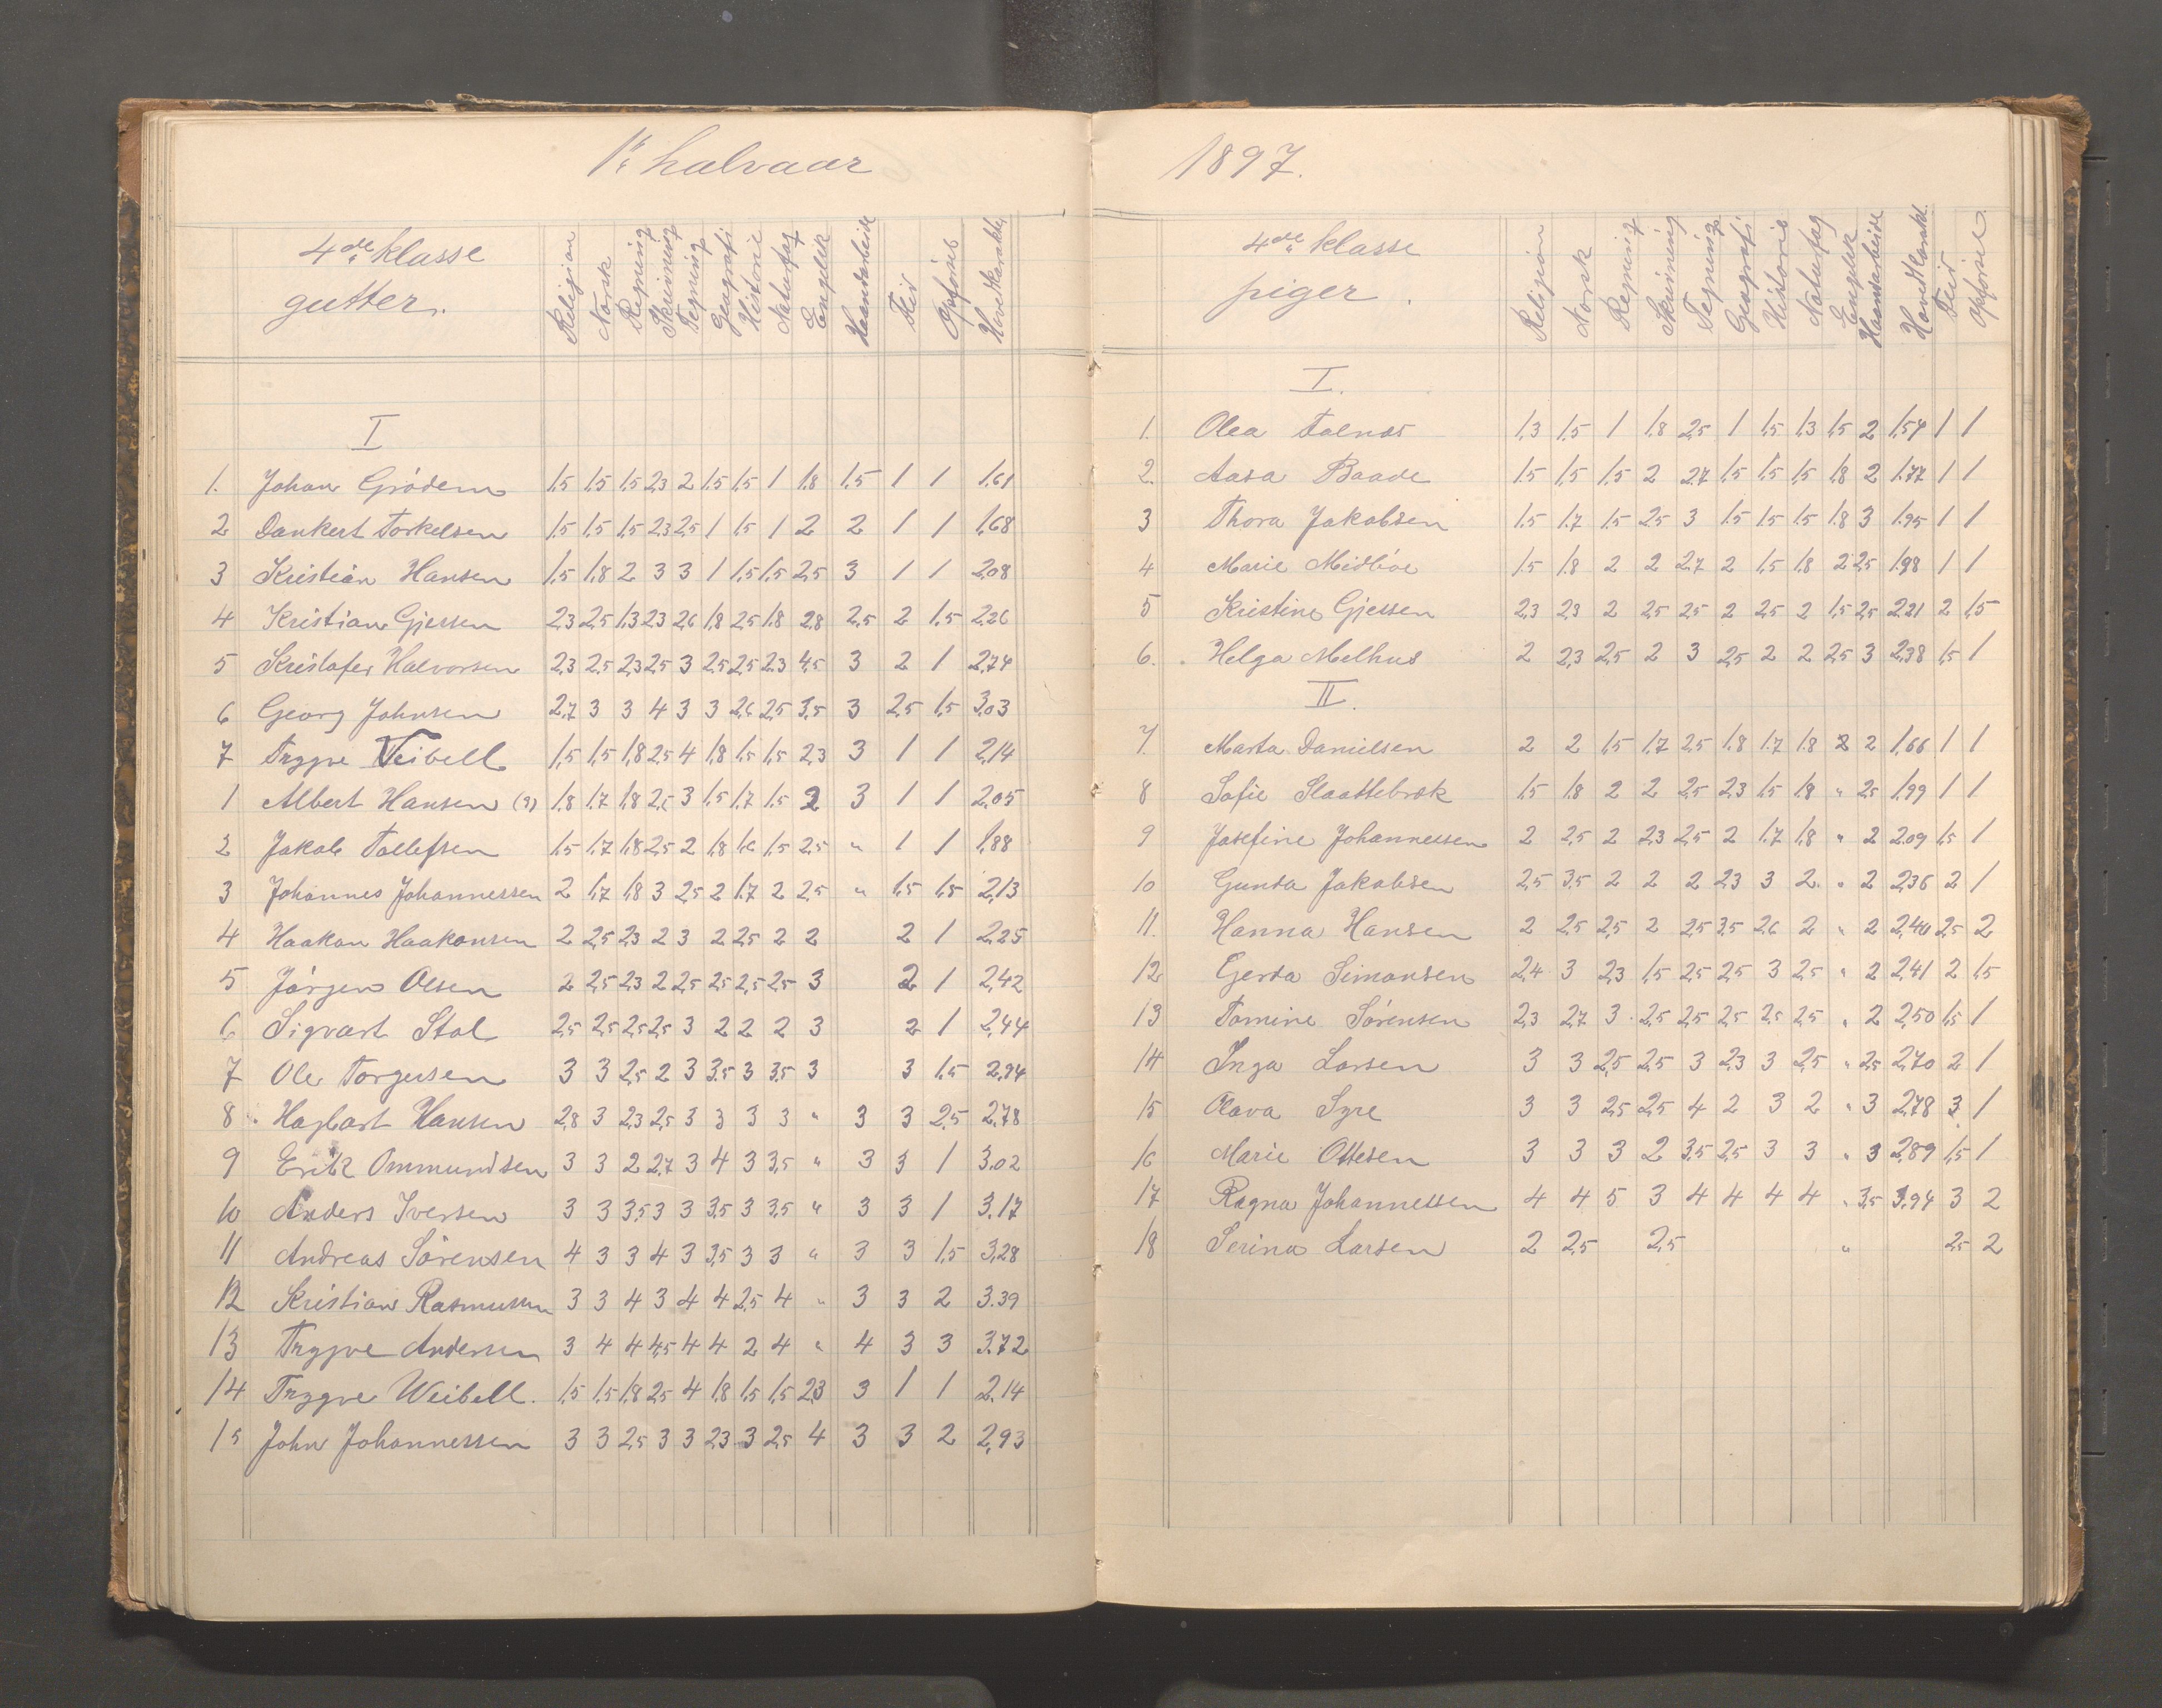 1ste halvaar
4de klasse
gutter.
Religion Norsk Regning Skrivning Tegning Geografi Historie Naturfag Engelsk Haandarbeide Flid Opførsel Hovedkarakter
I
1. Johan Grødem 1,5 1,5 1,5 2,3 2 1,5 1,5 1 1,8 1,5 1 1 1,61
2 Dankert Torkelsen 1,5 1,5 1,5 2,3 2,5 1 1,5 1 2 2 1 1 1,68
3 Kristian Hansen 1,5 1,8 2 3 3 1 1,5 1,5 2,5 3 1 1 2,08
4 Kristian Gjessen 2,3 2,5 1,3 2,3 2,6 1,8 2,5 1,8 2,8 2,5 2 1,5 2,26
5 Kristofer Halvorsen 2,3 2,5 2,3 2,5 3 2,5 2,5 2,3 4,5 3 2 1 2,74
6 Georg Johnsen 2,7 3 3 4 3 3 2,6 2,5 3,5 3 2,5 1,5 3,03
7 Trygve Veibell 1,5 1,5 1,8 2,5 4 1,8 1,5 1,5 2,3 3 1 1 2,14
1 Albert Hansen (9) 1,8 1,7 1,8 2,5 3 1,5 1,7 1,5 2 3 1 1 2,05
2 Jakob Tollefsen 1,5 1,7 1,8 2,5 2 1,8 1,6 1,5 2,5 " 1 1 1,88
3 Johannes Johannessen 2 1,7 1,8 3 2,5 2 1,7 2 2,5 " 1,5 1,5 2,13
4 Haakon Haakonsen 2 2,5 2,3 2 3 2 2,5 2 2 2 1 2,25
5 Jørgen Olsen 2 2,5 2,3 2 2,5 2,5 2,5 2,5 3 2 1 2,42
6 Sigvart Stol 2,5 2,5 2,5 2,5 3 2 2 2 3 2 1 2,44
7 Ole Torgersen 3 3 2,5 2 3 3,5 3 3,5 3 3 1,5 2,94
8 Hagbart Hansen 2,8 3 2,3 2,5 3 3 3 3 " 3 3 2,5 2,78
9 Erik Ommundsen 3 3 2 2,7 3 4 3 3,5 " 3 3 1 3.02
10 Anders Iversen 3 3 3,5 3 3 3,5 3 3,5 " 3 3 1 3.17
11 Andreas Sörensen 4 3 3 4 3 3,5 3 3 " 3 3 1,5 3,28
12 Kristian Rasmussen 3 3 4 3 4 4 2,5 4 " 3 3 2 3.39
13 Trygve Andersen 3 4 4 4,5 4 4 2 4 " 4 3 3 3.72
14 Trygve Weibell. 1,5 1,5 1,8 2,5 4 1,8 1,5 1,5 2,3 3 1 1 2.14
15 John Johannessen 3 3 2,5 3 3 2,3 3 2,5 4 3 3 2 2,93
1897.
4de klasse
piger.
Religion Norsk Regning Skrivning Tegning Geografi Historie Naturfag Engelsk Haandarbeide Hovedkarakt. Flid Opførsel
I.
1. Olea Talnæs 1,3 1,5 1 1,8 2,5 1 1,5 1,3 1,5 2 1,54 1 1
2. Aasa Baade 1,5 1,5 1,5 2 2,7 1,5 1,5 1,5 1,8 2 1,77 1 1
3 Thora Jakobsen 1,5 1,7 1,5 2,5 3 1,5 1,5 1,5 1,8 3 1,95 1 1
4 Marie Midbøe 1,5 1,8 2 2 2,7 2 1,5 1,8 2 2,5 1,98 1 1
5 Kristine Gjessen 2,3 2,3 2 2,5 2,5 2 2,5 2 1,5 2,5 2,21 2 1,5
6. Helga Melhus 2 2,3 2,5 2 3 2,5 2 2 2,5 3 2,38 1,5 1
II.
7. Marta Danielsen 2 2 1,5 1,7 2,5 1,8 1,7 1,8 2 2 1,66 1 1
8 Sofie Slaattebræk 1,5 1,8 2 2 2,5 2,3 1,5 1,8 " 2,5 1,99 1 1
9 Josefine Johannessen 2 2,5 2 2,3 2,5 2 1,7 1,8 " 2 2,09 1,5 1
10 Gunda Jakobsen 2,5 3,5 2 2 2 2,3 3 2 " 2 2,36 2 1
11. Hanna Hansen 2 2,5 2,5 2 2,5 3,5 2,6 2 " 2 2,40 2,5 2
12 Gerda Simonsen 2,4 3 2,3 1,5 2,5 2,5 3 2,5 " 2 2,41 2 1,5
13 Tomine Sörensen 2,3 2,7 3 2,5 2,5 2,5 2,5 2,5 " 2 2,50 1,5 1
14 Inga Larsen 3 3 2,5 2,5 3 2,3 3 2,5 " 2,5 2,70 2 1
15 Olava Syre 3 3 2,5 2,5 4 2 3 2 " 3 2,78 3 1
16 Marie Ottesen 3 3 3 2 3,5 2,5 3 3 " 3 2,89 1,5 1
17 Ragna Johannessen 4 4 5 3 4 4 4 4 " 3,5 3,94 3 2
18 Serina Larsen 2 2,5 2,5 " 2,5 2